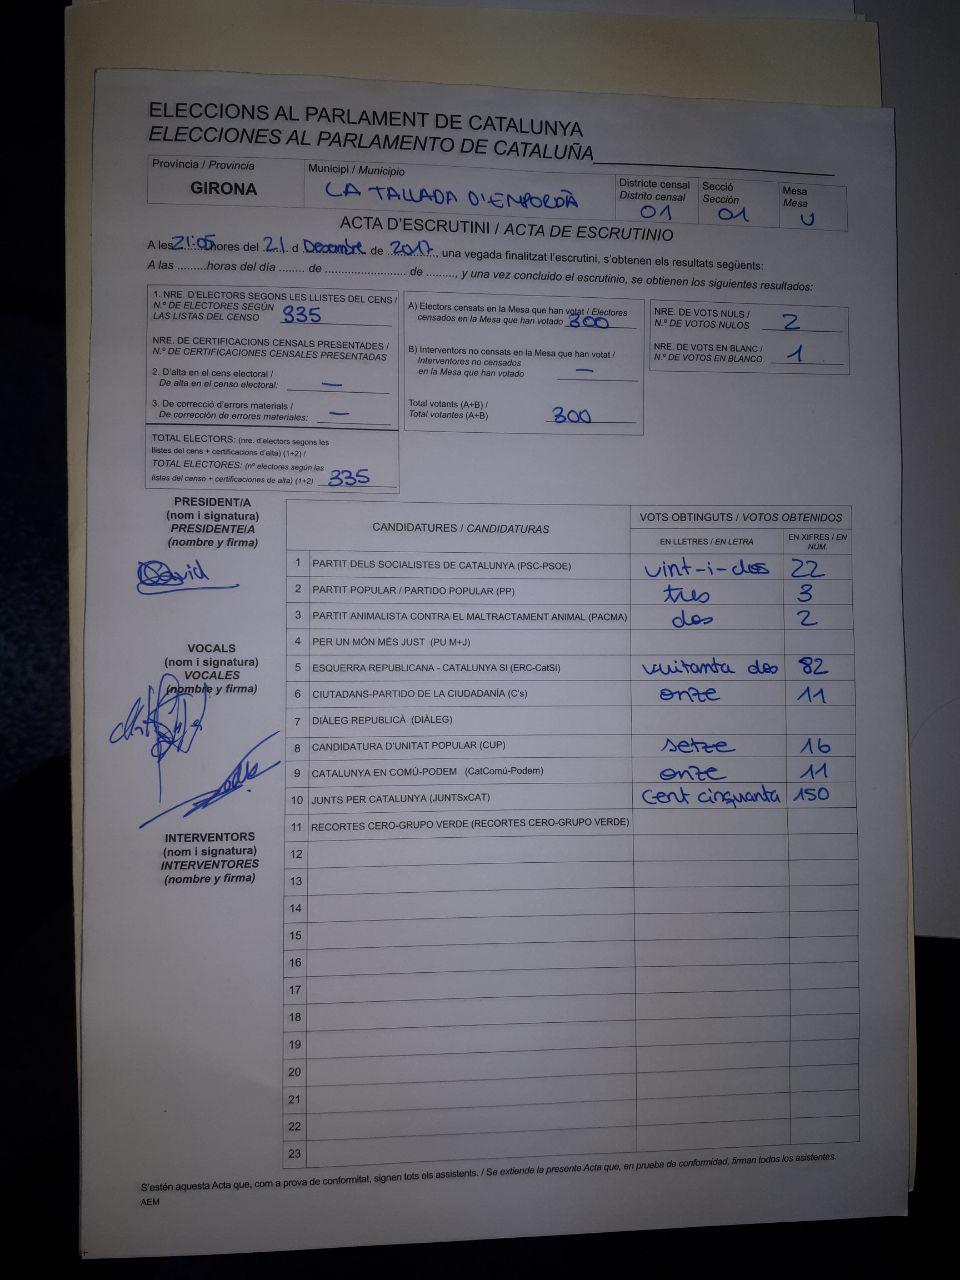 ELECCIONS AL PARLAMENT DE CATALUNYA
ELECCIONES AL PARLAMENTO DE CATALUÑA
Provincia / Provincia
GIRONA
Municipi / Municipio
LA TALLADA D'EMPORDÀ
Districte censal
Distrito censal
01
Secció
Sección
01
Mesa
Mesa
U
ACTA D'ESCRUTINI / ACTA DE ESCRUTINIO
A les 21:05 hores del 21 d Desembre de 2017, una vegada finalitzat l'escrutini, s'obtenen els resultats següents:
A las .........horas del día ........ de ......................... de ........., y una vez concluido el escrutinio, se obtienen los siguientes resultados:
1. NRE. D'ELECTORS SEGONS LES LLISTES DEL CENS /
N.º DE ELECTORES SEGÚN
LAS LISTAS DEL CENSO 335
NRE. DE CERTIFICACIONS CENSALS PRESENTADES /
N.º DE CERTIFICACIONES CENSALES PRESENTADAS
2. D'alta en el cens electoral /
De alta en el censo electoral: —
3. De correcció d'errors materials /
De corrección de errores materiales: —
TOTAL ELECTORS: (nre. d'electors segons les
llistes del cens + certificacions d'alta) (1+2) /
TOTAL ELECTORES: (nº electores según las
listas del censo + certificaciones de alta) (1+2) 335
A) Electors censats en la Mesa que han votat / Electores
censados en la Mesa que han votado 300
B) Interventors no censats en la Mesa que han votat /
Interventores no censados
en la Mesa que han votado —
Total votants (A+B) /
Total votantes (A+B) 300
NRE. DE VOTS NULS /
N.º DE VOTOS NULOS 2
NRE. DE VOTS EN BLANC /
N.º DE VOTOS EN BLANCO 1
PRESIDENT/A
(nom i signatura)
PRESIDENTE/A
(nombre y firma)
David
VOCALS
(nom i signatura)
VOCALES
(nombre y firma)
INTERVENTORS
(nom i signatura)
INTERVENTORES
(nombre y firma)
CANDIDATURES / CANDIDATURAS
VOTS OBTINGUTS / VOTOS OBTENIDOS
EN LLETRES / EN LETRA
EN XIFRES / EN
NÚM.
1 PARTIT DELS SOCIALISTES DE CATALUNYA (PSC-PSOE) vint-i-dos 22
2 PARTIT POPULAR / PARTIDO POPULAR (PP) tres 3
3 PARTIT ANIMALISTA CONTRA EL MALTRACTAMENT ANIMAL (PACMA) dos 2
4 PER UN MÓN MÉS JUST (PU M+J)
5 ESQUERRA REPUBLICANA - CATALUNYA SI (ERC-CatSí) vuitanta dos 82
6 CIUTADANS-PARTIDO DE LA CIUDADANÍA (C's) onze 11
7 DIÀLEG REPUBLICÀ (DIÀLEG)
8 CANDIDATURA D'UNITAT POPULAR (CUP) setze 16
9 CATALUNYA EN COMÚ-PODEM (CatComú-Podem) onze 11
10 JUNTS PER CATALUNYA (JUNTSxCAT) Cent cinquanta 150
11 RECORTES CERO-GRUPO VERDE (RECORTES CERO-GRUPO VERDE)
12
13
14
15
16
17
18
19
20
21
22
23
S'estén aquesta Acta que, com a prova de conformitat, signen tots els assistents. / Se extiende la presente Acta que, en prueba de conformidad, firman todos los asistentes.
AEM